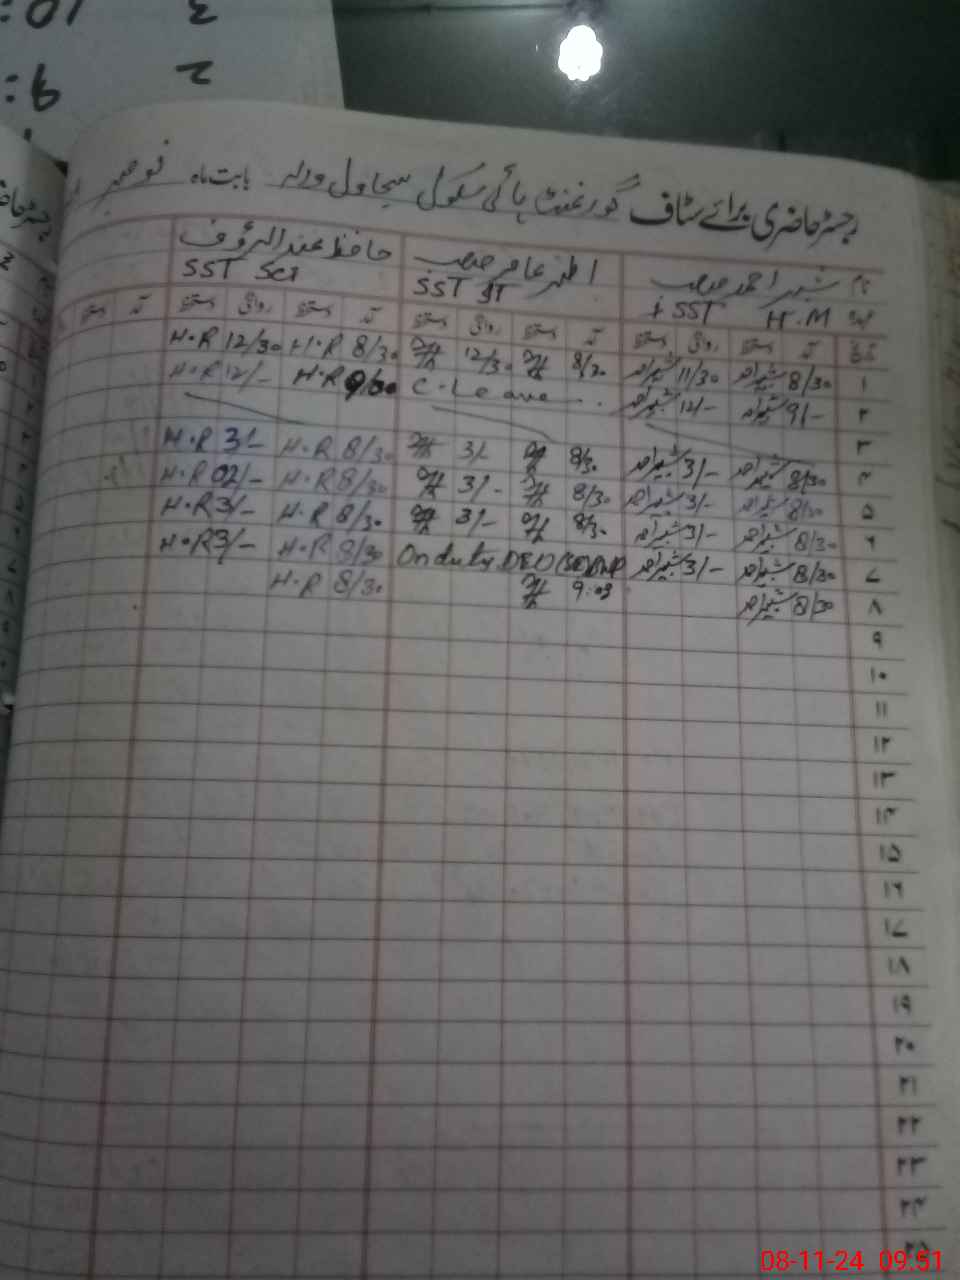 رجسٹر حاضری برائے سٹاف گورنمنٹ ہائی سکول سجاول والہ بابت ماہ نومبر
نام شبیر احمد صاحب اظہر عامر صاحب حافظ عبدالرؤف
عہدہ H.M + SST SST IT SST Sci
تاریخ آمد دستخط روانگی دستخط آمد دستخط روانگی دستخط آمد دستخط روانگی دستخط آمد دستخط
۱ 8/30 شبیر احمد 11/30 شبیر احمد 8/30 12/30 8/30 H.R 12/30 H.R
۲ 9/- شبیر احمد 12/- شبیر احمد C. Leave .. 9/30 H.R 12/- H.R
۳
۴ 8/30 شبیر احمد 3/- شبیر احمد 8/30 3/- 8/30 H.R 3/- H.R
۵ 8/30 شبیر احمد 3/- شبیر احمد 8/30 3/- 8/30 H.R 02/- H.R
۶ 8/30 شبیر احمد 3/- شبیر احمد 8/30 3/- 8/30 H.R 3/- H.R
۷ 8/30 شبیر احمد 3/- شبیر احمد On duty DEO 8/30 H.R 3/- H.R
۸ 8/30 شبیر احمد 9:03 8/30 H.R
۹
۱۰
۱۱
۱۲
۱۳
۱۴
۱۵
۱۶
۱۷
۱۸
۱۹
۲۰
۲۱
۲۲
۲۳
۲۴
۲۵
08-11-24 09:51